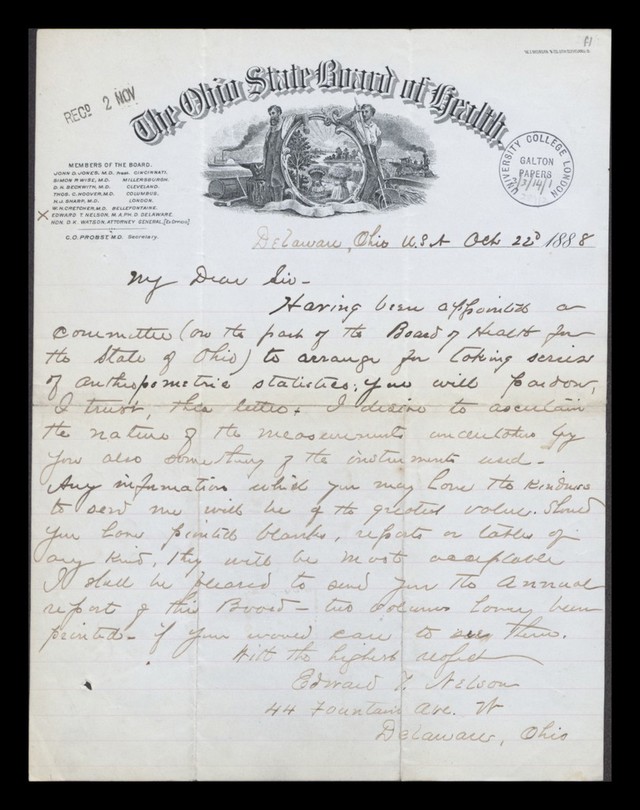 REC'D 2 NOV
The Ohio State Board of Health.
UNIVERSITY COLLEGE LONDON
GALTON
PAPERS
MEMBERS OF THE BOARD.
JOHN D. JONES, M.D. Prest. CINCINNATI.
SIMON P. WISE, M.D. MILLERSBURGH.
D. H. BECKWITH, M.D. CLEVELAND.
THOS. C. HOOVER, M.D. COLUMBUS.
H. J. SHARP, M.D. LONDON.
W. H. CRETCHER, M.D. BELLEFONTAINE.
X EDWARD T. NELSON, M.A. PH.D. DELAWARE.
HON. D. K. WATSON, ATTORNEY GENERAL, [Ex Officio]
C. O. PROBST M.D. Secretary.
Delaware, Ohio U.S.A Oct 22d 1888
My Dear Sir -
Having been appointed a
committee (on the part of the Board of Health for
the State of Ohio) to arrange for taking series
of anthropometric statistics, you will pardon,
I trust, this letter. I desire to ascertain
the nature of the measurements undertaken by
you also something of the instruments used -
Any information which you may have the kindness
to send me will be of the greatest value. Should
you have printed blanks, reports or tables of
any kind, they will be most acceptable
I shall be pleased to send you the Annual
report of this Board - two volumes having been
printed - if you would care to see them.
With the highest respect
Edward T. Nelson
44 Fountain Ave. W
Delaware, Ohio